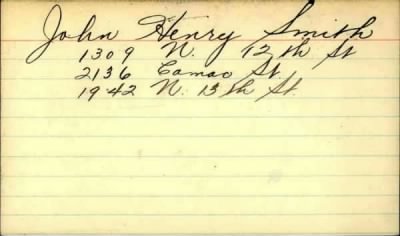 John Henry Smith
1309 N. 12th St
2136 Camac St.
1942 N. 13th St.